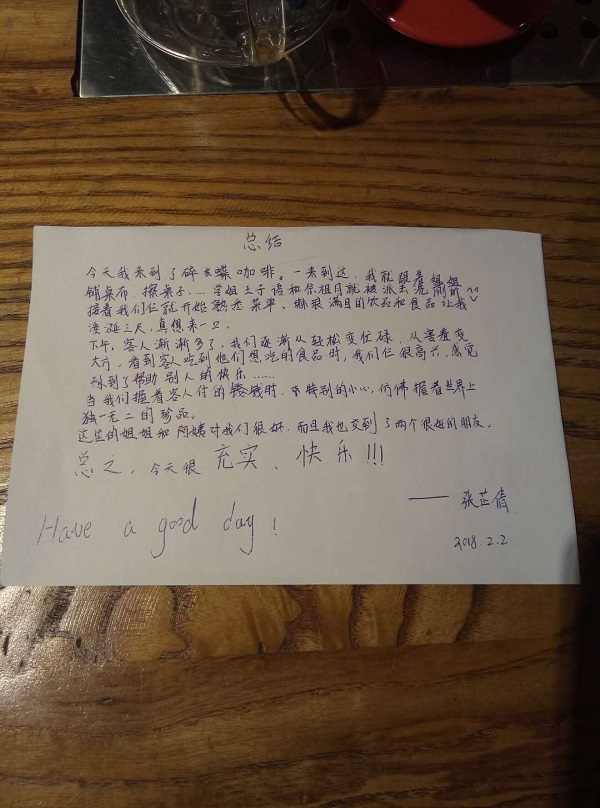 总结
今天我来到了碎玄蝶咖啡。一来到这，我就跟着姐姐
铺桌布、擦桌子……学姐王子语和佘祖月就被派去洗厕所
接着我们仨就开始熟悉菜单。琳琅满目的饮品和食品让我
垂涎三尺，真想来一口。
下午，客人渐渐多了，我们逐渐从轻松变忙碌，从害羞变
大方，看到客人吃到他们想吃的食品时，我们仨很高兴，感觉
找到了帮助别人的快乐……
当我们握着客人付的钱时，特别的小心，仿佛握着世界上
独一无二的珍品。
这里的姐姐和阿姨对我们很好，而且我也交到了两个很好的朋友。
总之，今天很充实、快乐!!!
—— 张芷倩
Have a good day!
2018.2.2